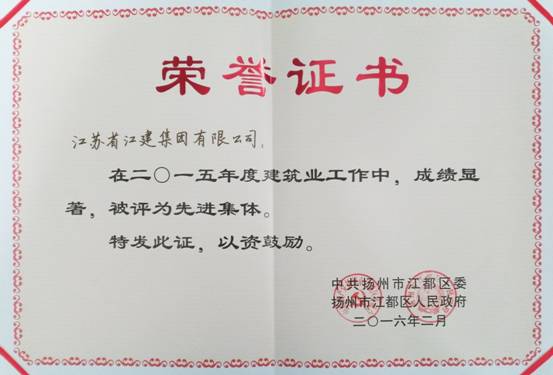 荣誉证书
江苏省江建集团有限公司:
在二〇一五年度建筑业工作中，成绩显
著，被评为先进集体。
特发此证，以资鼓励。
中共扬州市江都区委
扬州市江都区人民政府
二〇一六年二月